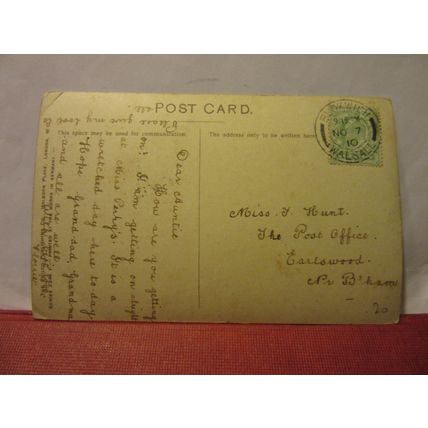 POST CARD.
This space may be used for communication.
The address only to be written here
Dear Auntie
How are you getting
on? I'm getting on alright
at Miss Perky's. It is a
wretched day here to-day
Hope Grandad, Grandma
and all are well
Please give my love
Florrie
WALSALL
NO 7
10
Miss. F. Hunt.
The Post Office.
Earlswood.
Nr B'ham
20